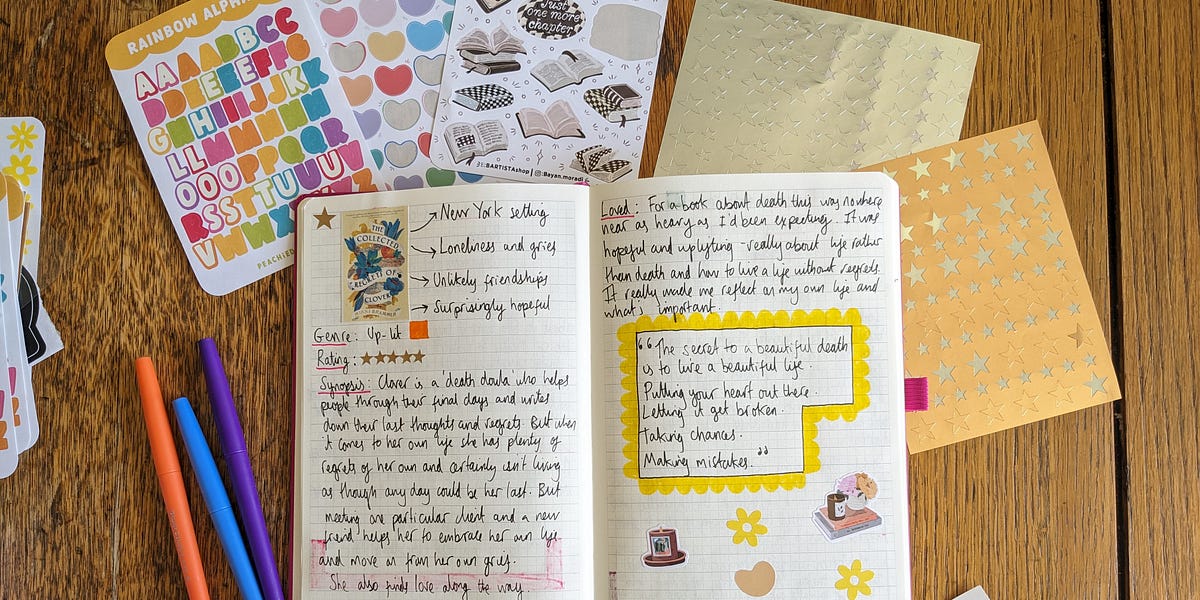 RAINBOW ALPHA
AAAABBCC
DDEEEEFF
GHHIIIJJKK
LLMMNNN
OOOPPQR
RSSTTUUU
VWWXY
PEACHIE
Just
one more
chapter
BARTISTAshop | @Bayan.moradi
THE
COLLECTED
REGRETS OF
CLOVER
New York setting
Loneliness and grief
Unlikely friendships
Surprisingly hopeful
Genre: Up-lit
Rating:
Synopsis: Clover is a 'death doula' who helps
people through their final days and writes
down their last thoughts and regrets. But when
it comes to her own life she has plenty of
regrets of her own and certainly isn't living
as though any day could be her last. But
meeting one particular client and a new
friend helps her to embrace her own life
and move on from her own grief.
She also finds love along the way.
Loved: For a book about death this was nowhere
near as heavy as I'd been expecting. It was
hopeful and uplifting - really about life rather
than death and how to live a life without regrets.
It really made me reflect on my own life and
what's important.
"The secret to a beautiful death
is to live a beautiful life.
Putting your heart out there.
Letting it get broken.
Taking chances.
Making mistakes."